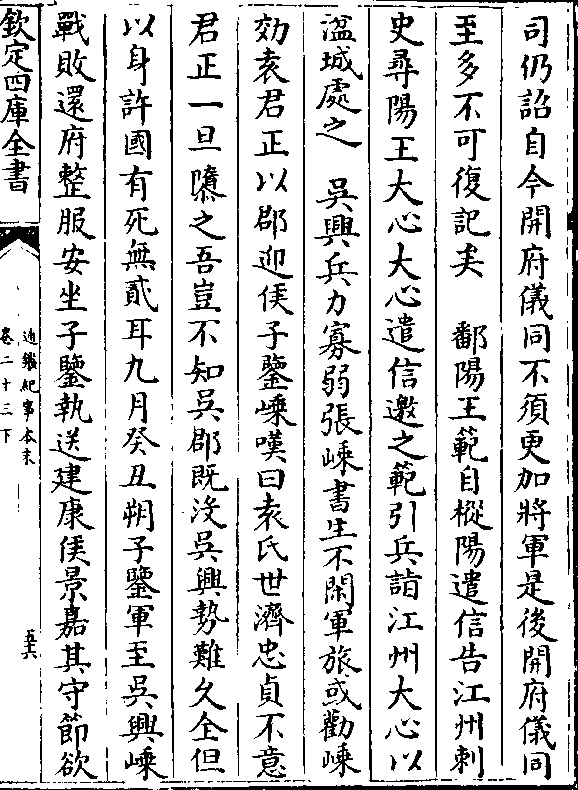 司仍詔自今開府儀同不須更加將軍是後開府儀同
至多不可復記矣　鄱陽王範自樅陽遣信告江州刺
史尋陽王大心大心遣信邀之範引兵詣江州大心以
湓城處之　吳興兵力寡弱張嵊書生不閑軍旅或勸嵊
効袁君正以郡迎侯子鑒嵊嘆曰袁氏世濟忠貞不意
君正一旦隳之吾豈不知吳郡既沒吳興勢難久全但
以身許國有死無貳耳九月癸丑朔子鑒軍至吳興嵊
戰敗還府整服安坐子鑒執送建康侯景嘉其守節欲
欽定四庫全書
通鑑紀事本末
卷二十三下
五六